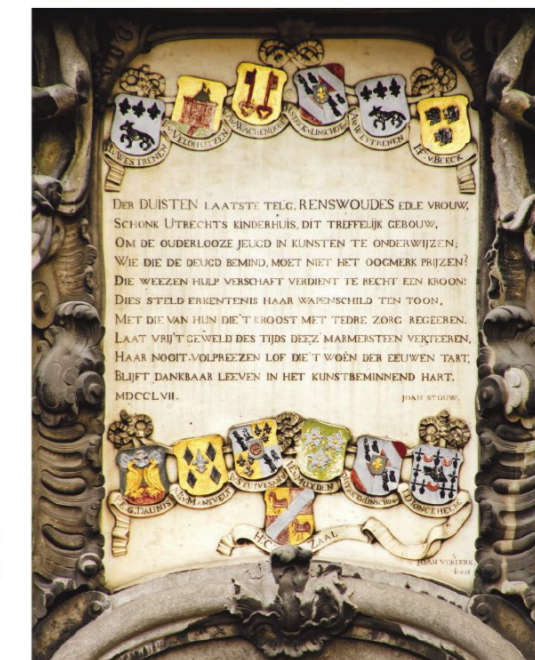 V. WESTRENEN
VELDHUYZEN
WACHENDORF
STRICK V. LINSCHOTEN
V. WESTRENEN
V. BEECK
DER DUISTEN LAATSTE TELG, RENSWOUDES EDLE VROUW,
SCHONK UTRECHTS KINDERHUIS, DIT TREFFELIJK GEBOUW,
OM DE OUDERLOOZE JEUGD IN KUNSTEN TE ONDERWIJZEN;
WIE DIE DE DEUGD BEMIND, MOET NIET HET OOGMERK PRIJZEN?
DIE WEEZEN HULP VERSCHAFT VERDIENT TE RECHT EEN KROON!
DIES STELD ERKENTENIS HAAR WAPENSCHILD TEN TOON,
MET DIE VAN HUN DIE'T KROOST MET TEDRE ZORG REGEEREN.
LAAT VRIJ'T GEWELD DES TIJDS DEEZ' MARMERSTEEN VERTEEREN,
HAAR NOOIT-VOLPREEZEN LOF DIE'T WOÊN DER EEUWEN TART,
BLIJFT DANKBAAR LEEVEN IN HET KUNSTBEMINNEND HART.
MDCCLVII.
JOAN STOUW.
G. DAUNIS
MANSVELT
MUYDEN
D'JONCKHEER
H.C. ZAAL
JOAN VERKERK
fecit